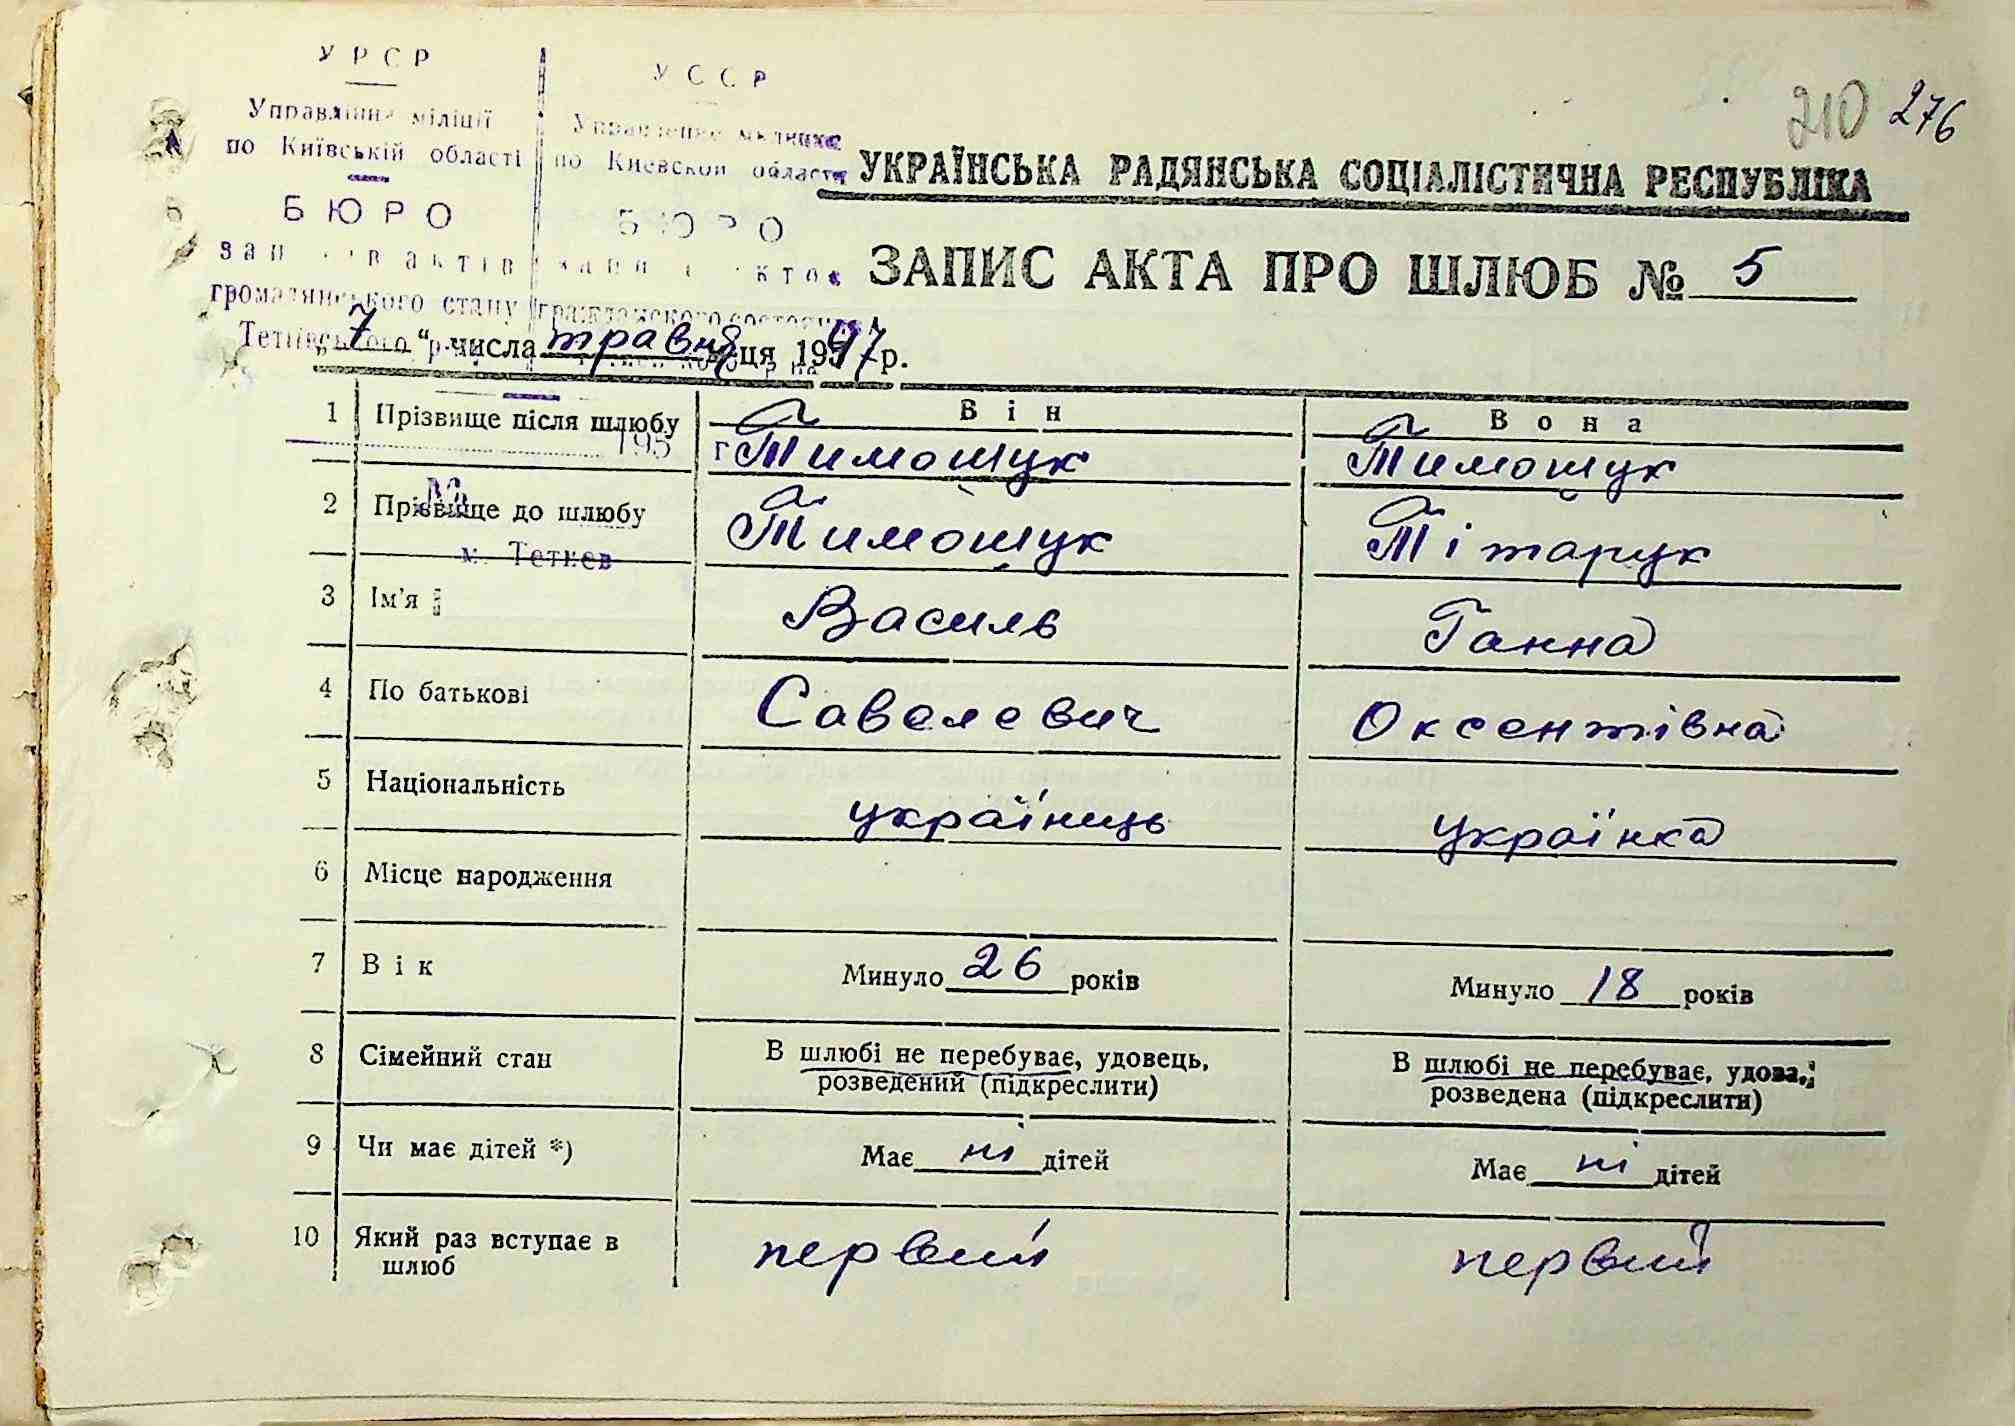 УРСР
УССР
210 276
Управління міліції
Управление милиции
по Київській області
по Киевской области
УКРАЇНСЬКА РАДЯНСЬКА СОЦІАЛІСТИЧНА РЕСПУБЛІКА
БЮРО
БЮРО
записів актів
записи актов
ЗАПИС АКТА ПРО ШЛЮБ № 5
громадянського стану
гражданского состояния
Тетіївського р-ну
„7“ числа травня ця 1947 р.
Він
Вона
1 Прізвище після шлюбу
195 г
Тимошук
Тимошук
2 Прізвище до шлюбу
№
Тимошук
Тітарук
м. Тетиев
3 Ім'я
Василь
Ганна
4 По батькові
Савелевич
Оксентівна
5 Національність
україниць
українка
6 Місце народження
7 Вік
Минуло 26 років
Минуло 18 років
8 Сімейний стан
В шлюбі не перебуває, удовець,
розведений (підкреслити)
В шлюбі не перебуває, удова,
розведена (підкреслити)
9 Чи має дітей *)
Має ні дітей
Має ні дітей
10 Який раз вступає в
шлюб
первий
первий